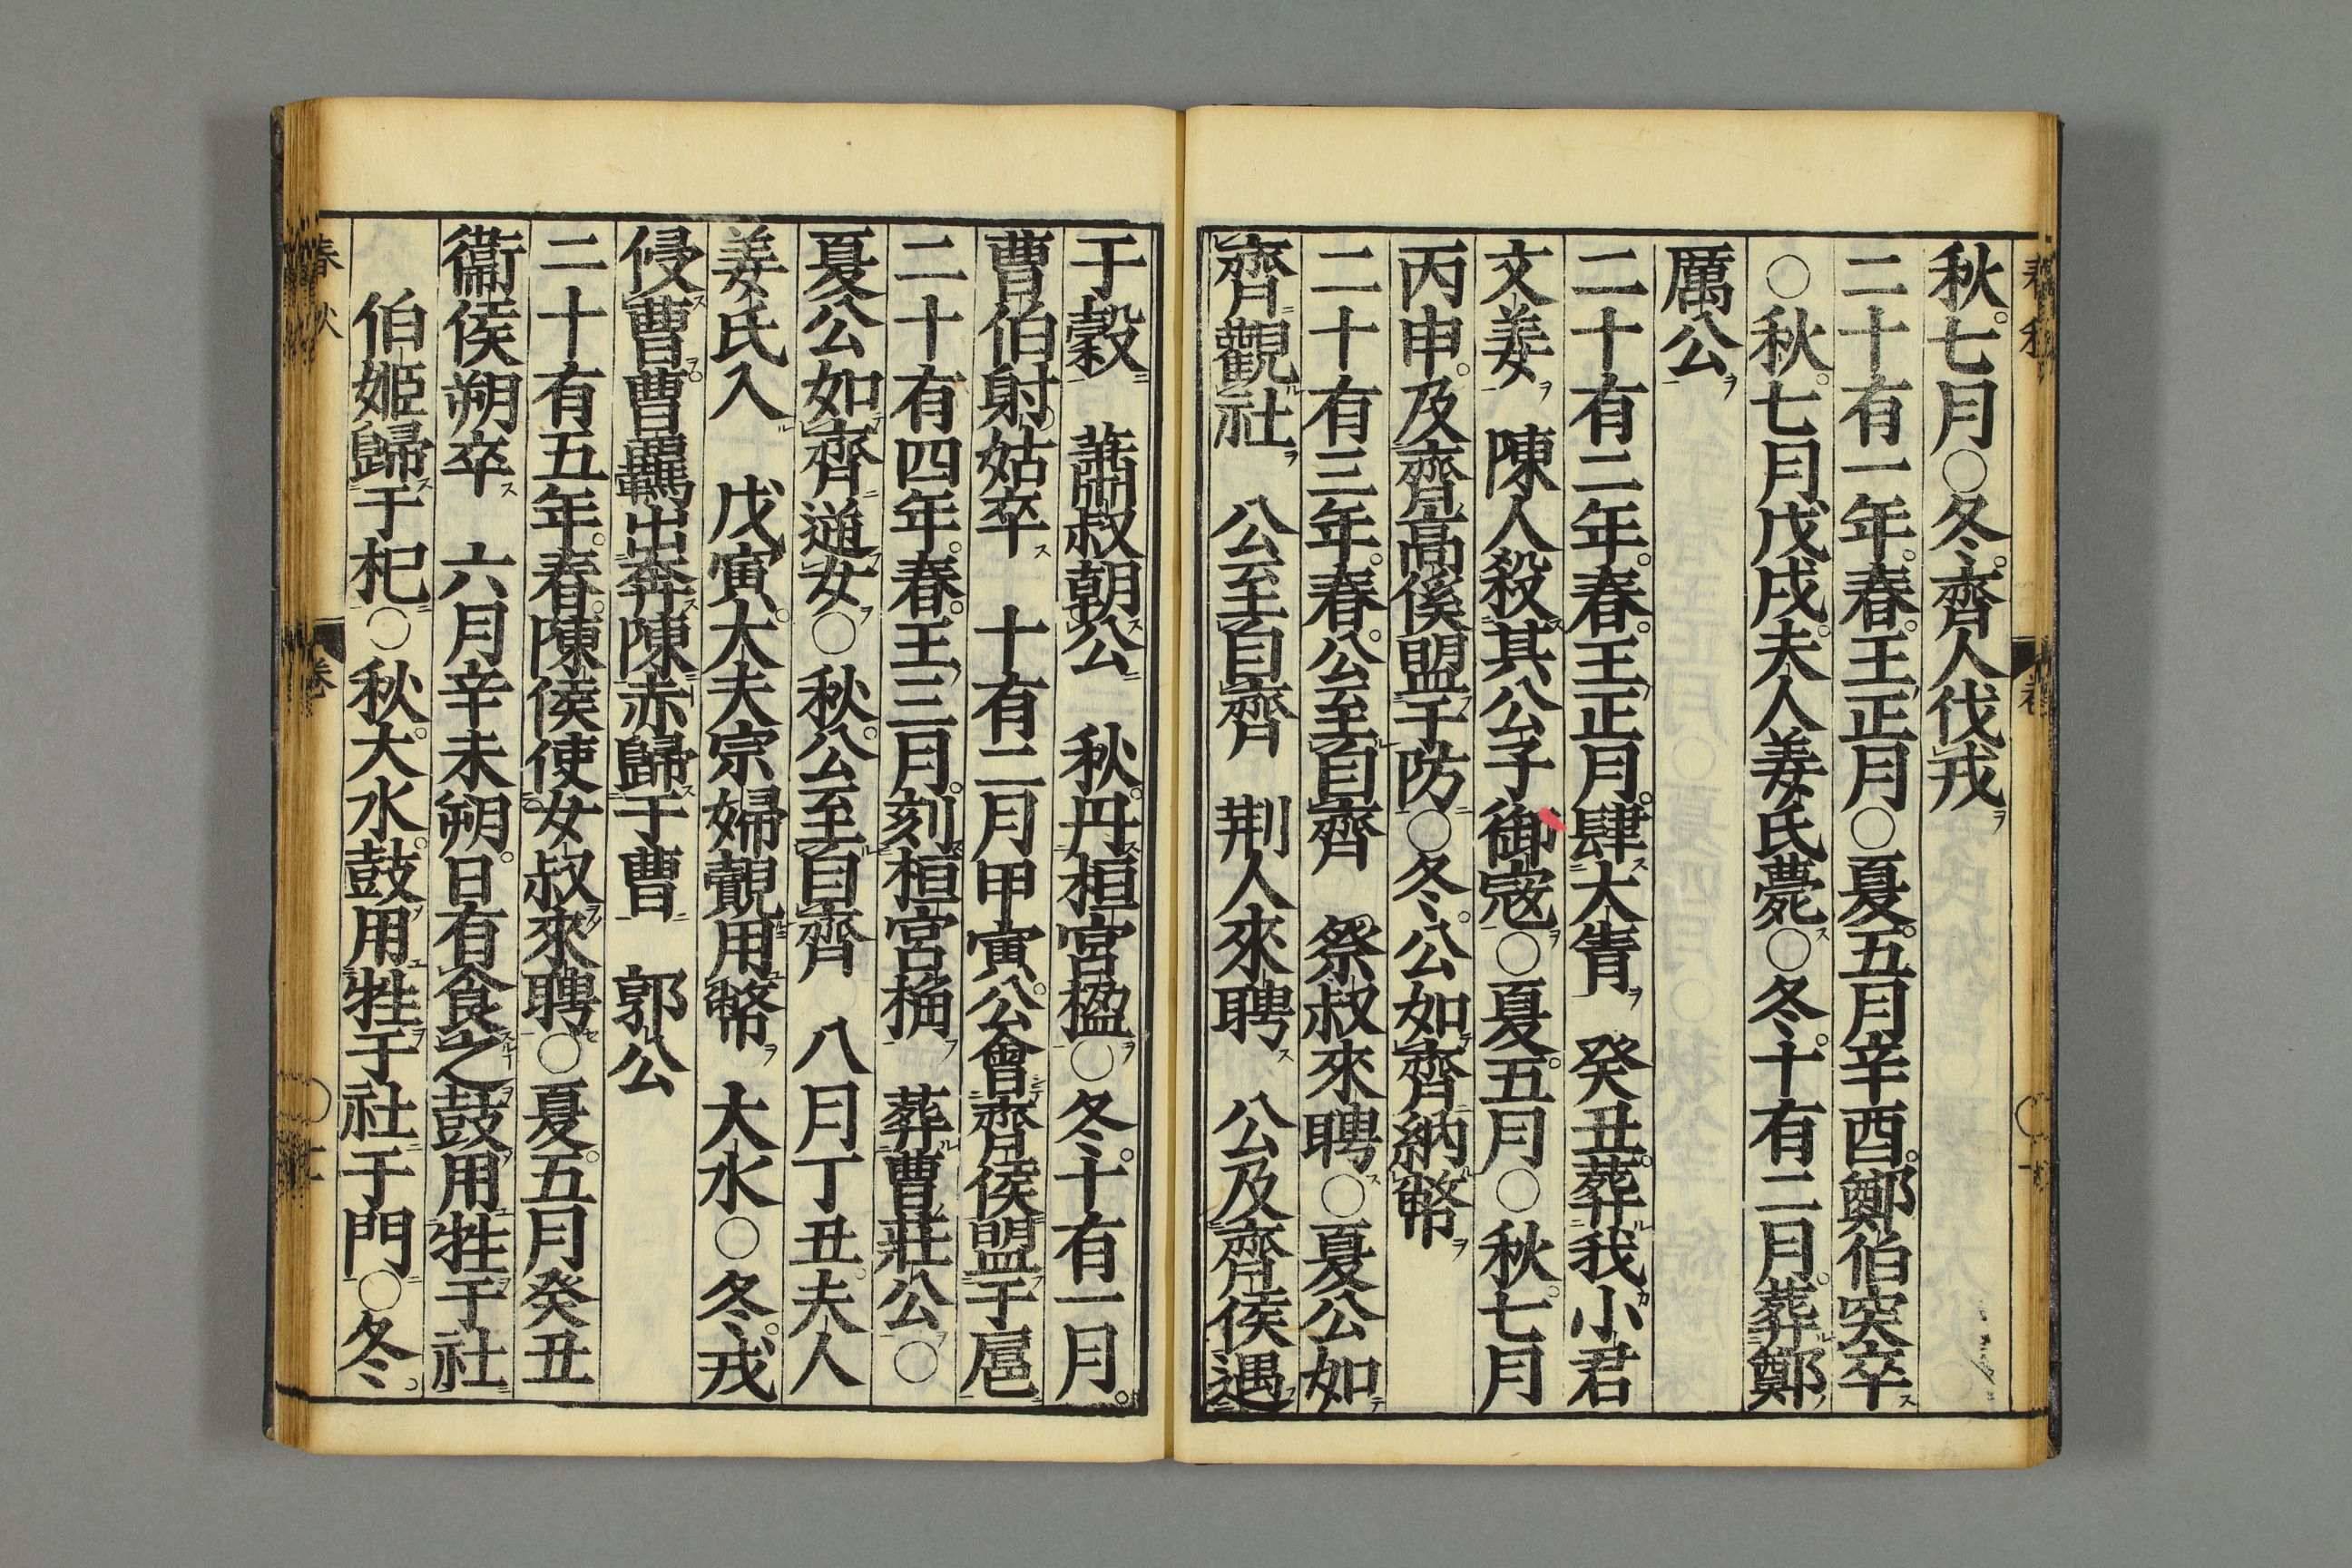 秋七月○冬齊人伐戎
二十有一年春王正月○夏五月辛酉鄭伯突卒
○秋七月戊戌夫人姜氏薨○冬十有二月葬鄭
厲公
二十有二年春王正月肆大眚　癸丑葬我小君
文姜　陳人殺其公子御寇○夏五月○秋七月
丙申及齊高傒盟于防○冬公如齊納幣
二十有三年春公至自齊　祭叔來聘○夏公如
齊觀社　公至自齊　荆人來聘　公及齊侯遇
于穀　蕭叔朝公　秋丹桓宮楹○冬十有一月
曹伯射姑卒　十有二月甲寅公會齊侯盟于扈
二十有四年春王三月刻桓宮桷　葬曹莊公○
夏公如齊逆女○秋公至自齊　八月丁丑夫人
姜氏入　戊寅大夫宗婦覿用幣　大水○冬戎
侵曹曹羈出奔陳赤歸于曹　郭公
二十有五年春陳侯使女叔來聘○夏五月癸丑
衞侯朔卒　六月辛未朔日有食之鼓用牲于社
伯姬歸于杞○秋大水鼓用牲于社于門○冬
春秋